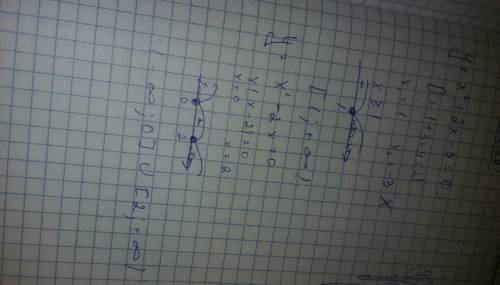 y = x² + 2x - 3 = 0
D = 1 + 3 = 4 (2)
x₁ = 1 x₂ = -3 x
x ≥ 1
1
[1; +∞)
y = x² - 2x = 0
x(x-2) = 0
x = 0 x = 2
+ - +
0 2
(-∞; 0] ∪ [2; +∞)